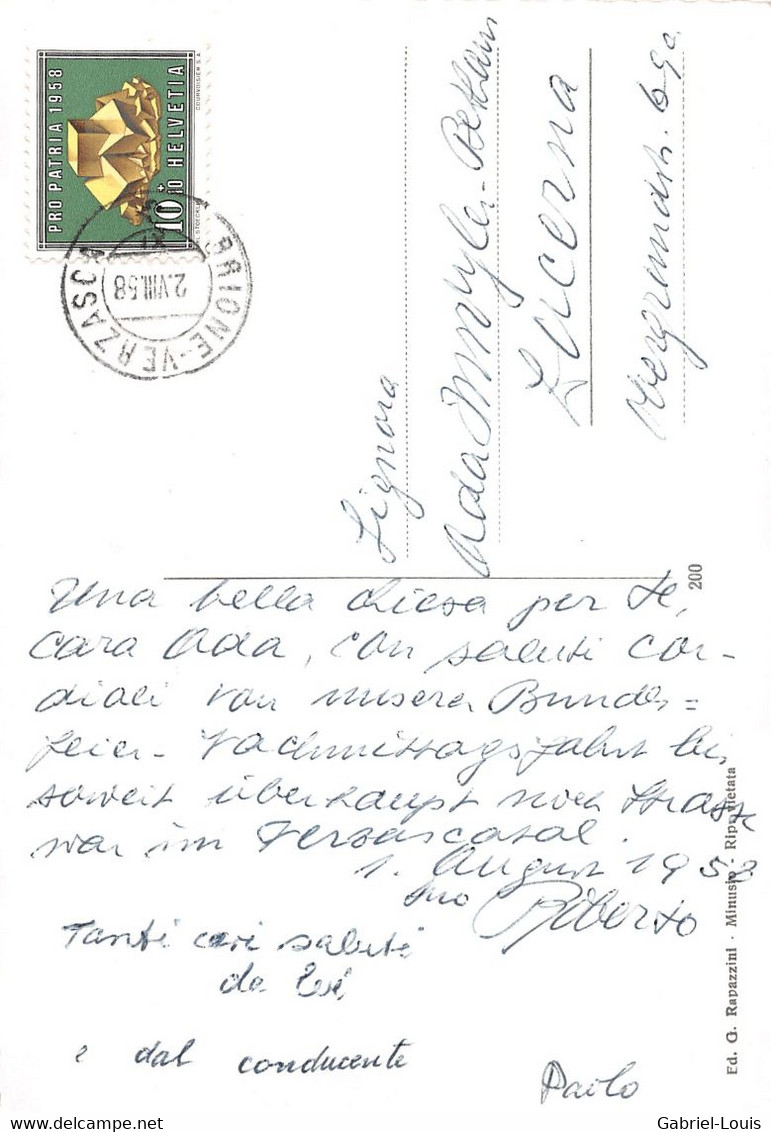 PRO PATRIA 1958
HELVETIA
10 + 10
COURVOISIER S.A.
BRIONE-VERZASCA
2.VIII.58
Signora
Ada
Lucerna
200
Una bella chiesa per te,
cara Ada, con saluti cor-
diali von unserer Bundes=
feier-Nachmittagsfahrt bis
soweit überhaupt noch Strasse
war im Versascatal.
1. August 1958
tuo Roberto
Tanti cari saluti
da
e dal conducente
Paolo
Ed. G. Rapazzini · Minusio · Ripr. vietata
Gabriel-Louis